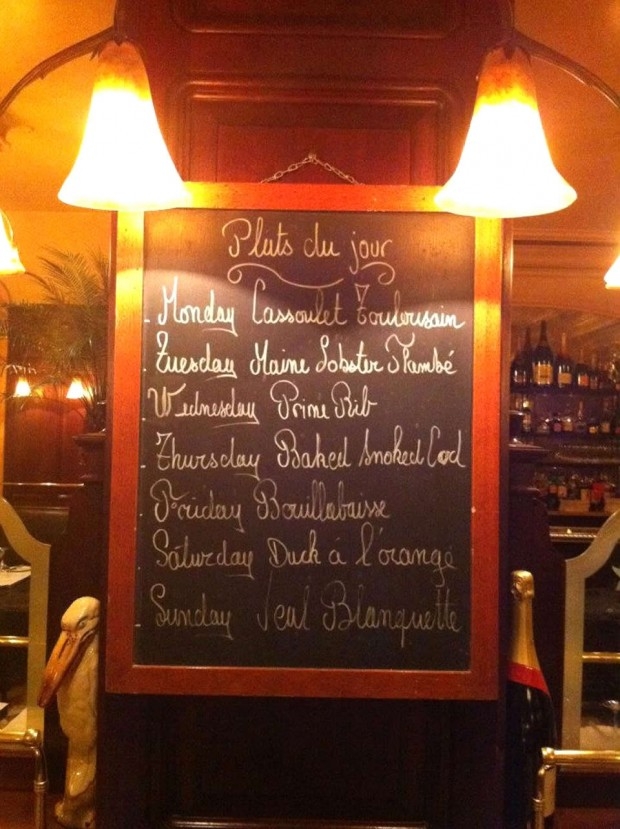 Plats du jour
- Monday Cassoulet Toulousain
- Tuesday Maine Lobster Flambé
- Wednesday Prime Rib
- Thursday Baked Smoked Cod
- Friday Bouillabaisse
- Saturday Duck à l'orange
- Sunday Veal Blanquette